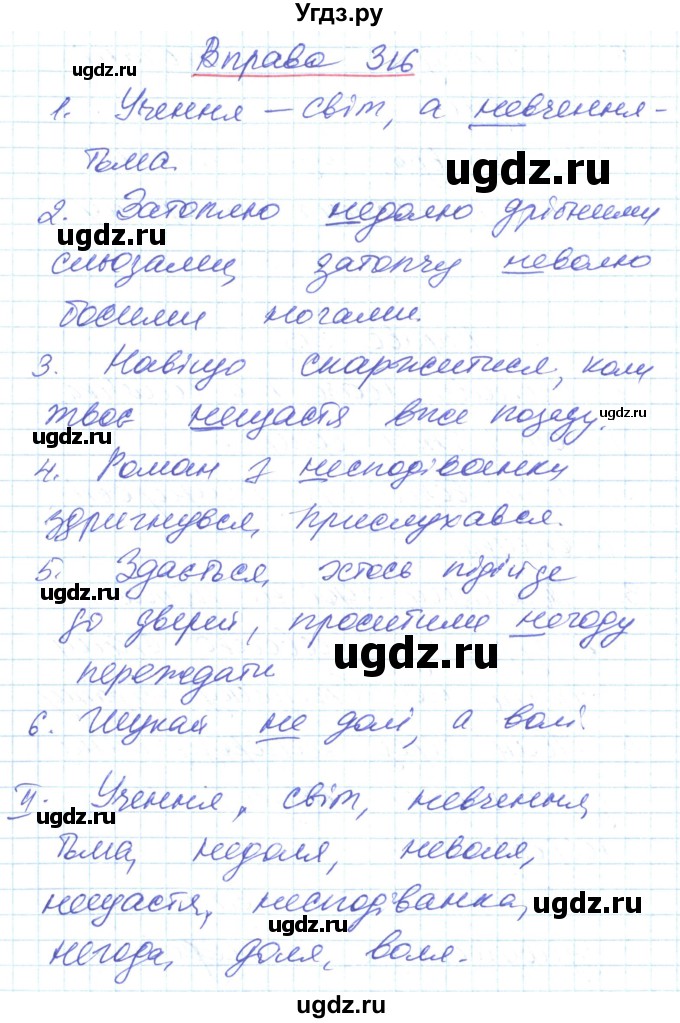 Угдз.ру
ugdz.ru
Вправа 316
1. Учення – світ, а невчення –
тьма.
ugdz.ru
2. Затоплю недолю дрібними
ugdz.ru
сльозами, затопчу неволю
босими ногами.
3. Навіщо скаржитися, коли
твоє нещастя вже позаду.
ugdz.ru
ugdz.ru
4. Роман з несподіванки
здригнувся, прислухався.
5. Здається, хтось підійде
ugdz.ru
до дверей, проситиме негоду
ugdz.ru
переждати
6. Шукай не долі, а волі.
II. Учення, світ, невчення,
ugdz.ru
тьма, недоля, неволя,
нещастя, несподіванка,
ugdz.ru
негода, доля, воля.
ugdz.ru